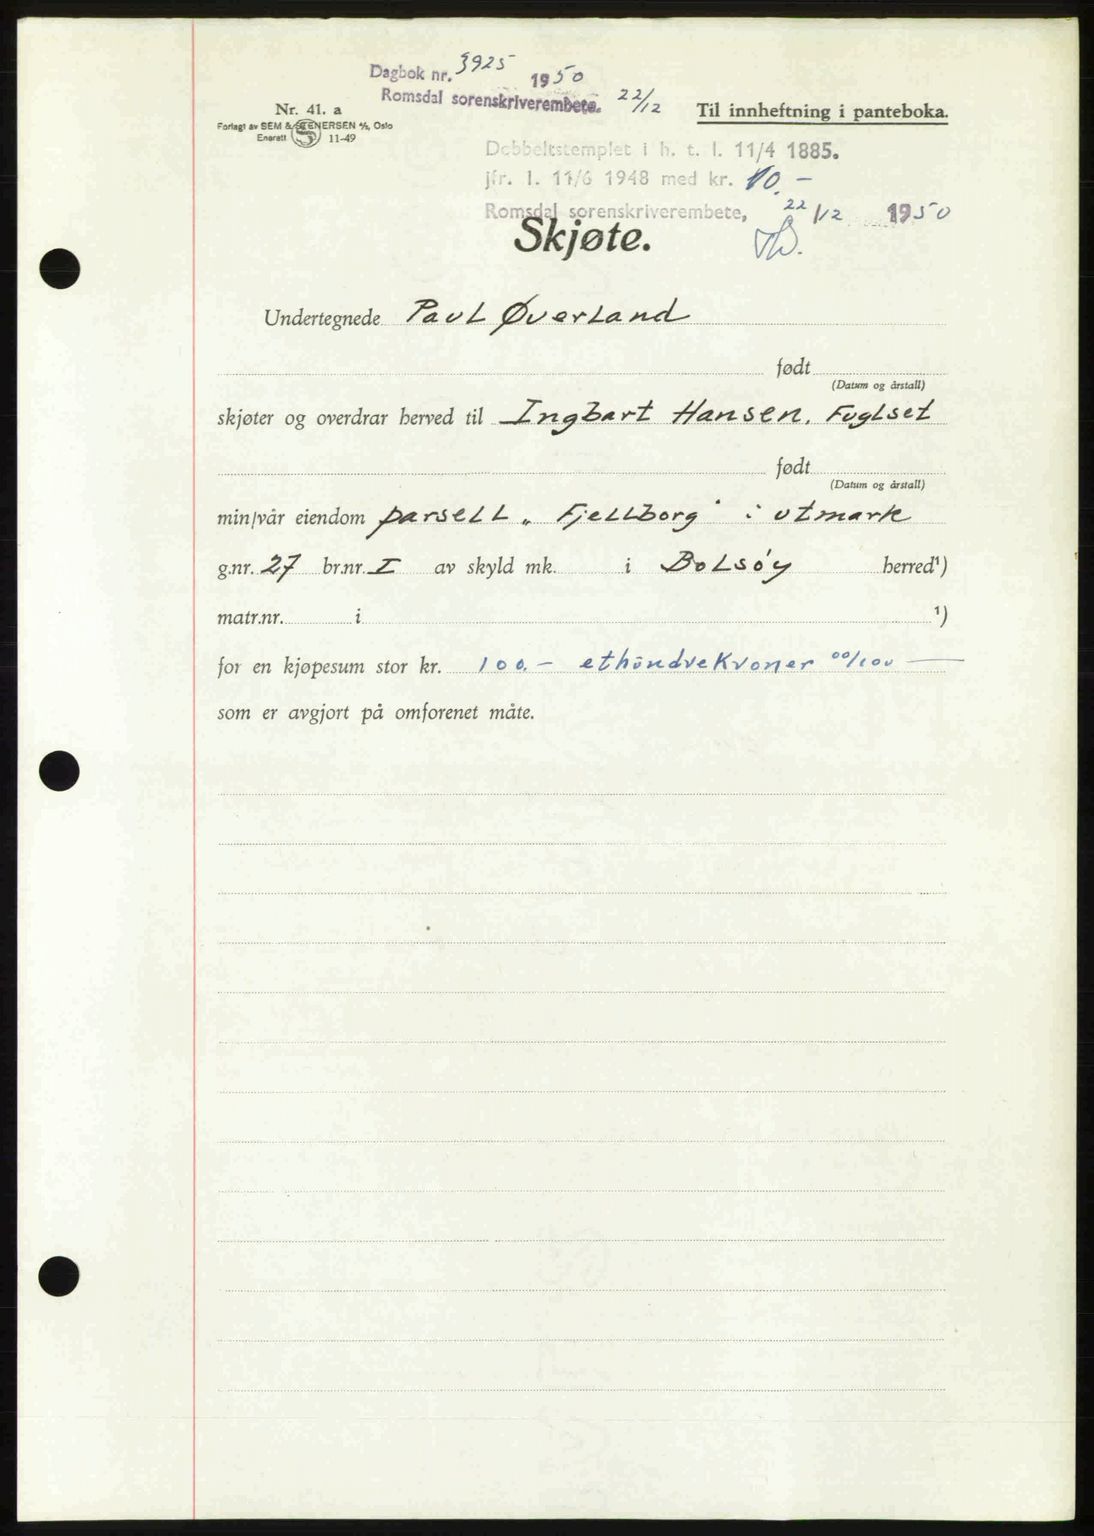 Dagbok nr. 3925 1950
Romsdal sorenskriverembete. 22/12
Nr. 41. a
Forlagt av SEM & STENERSEN A/S, Oslo
Enerett 11-49
Til innheftning i panteboka.
Dobbeltstemplet i h. t. l. 11/4 1885.
jfr. l. 11/6 1948 med kr. 10.-
Romsdal sorenskriverembete, 22/12 1950
Skjøte.
Undertegnede Paul Øverland
født
(Datum og årstall)
skjøter og overdrar herved til Ingbart Hansen, Fuglset
født
(Datum og årstall)
min/vår eiendom parsell „Fjellborg" i utmark
g.nr. 27 br.nr. I av skyld mk. i Bolsöy herred¹)
matr.nr. i ¹)
for en kjøpesum stor kr. 100.- ethundrekroner 00/100
som er avgjort på omforenet måte.